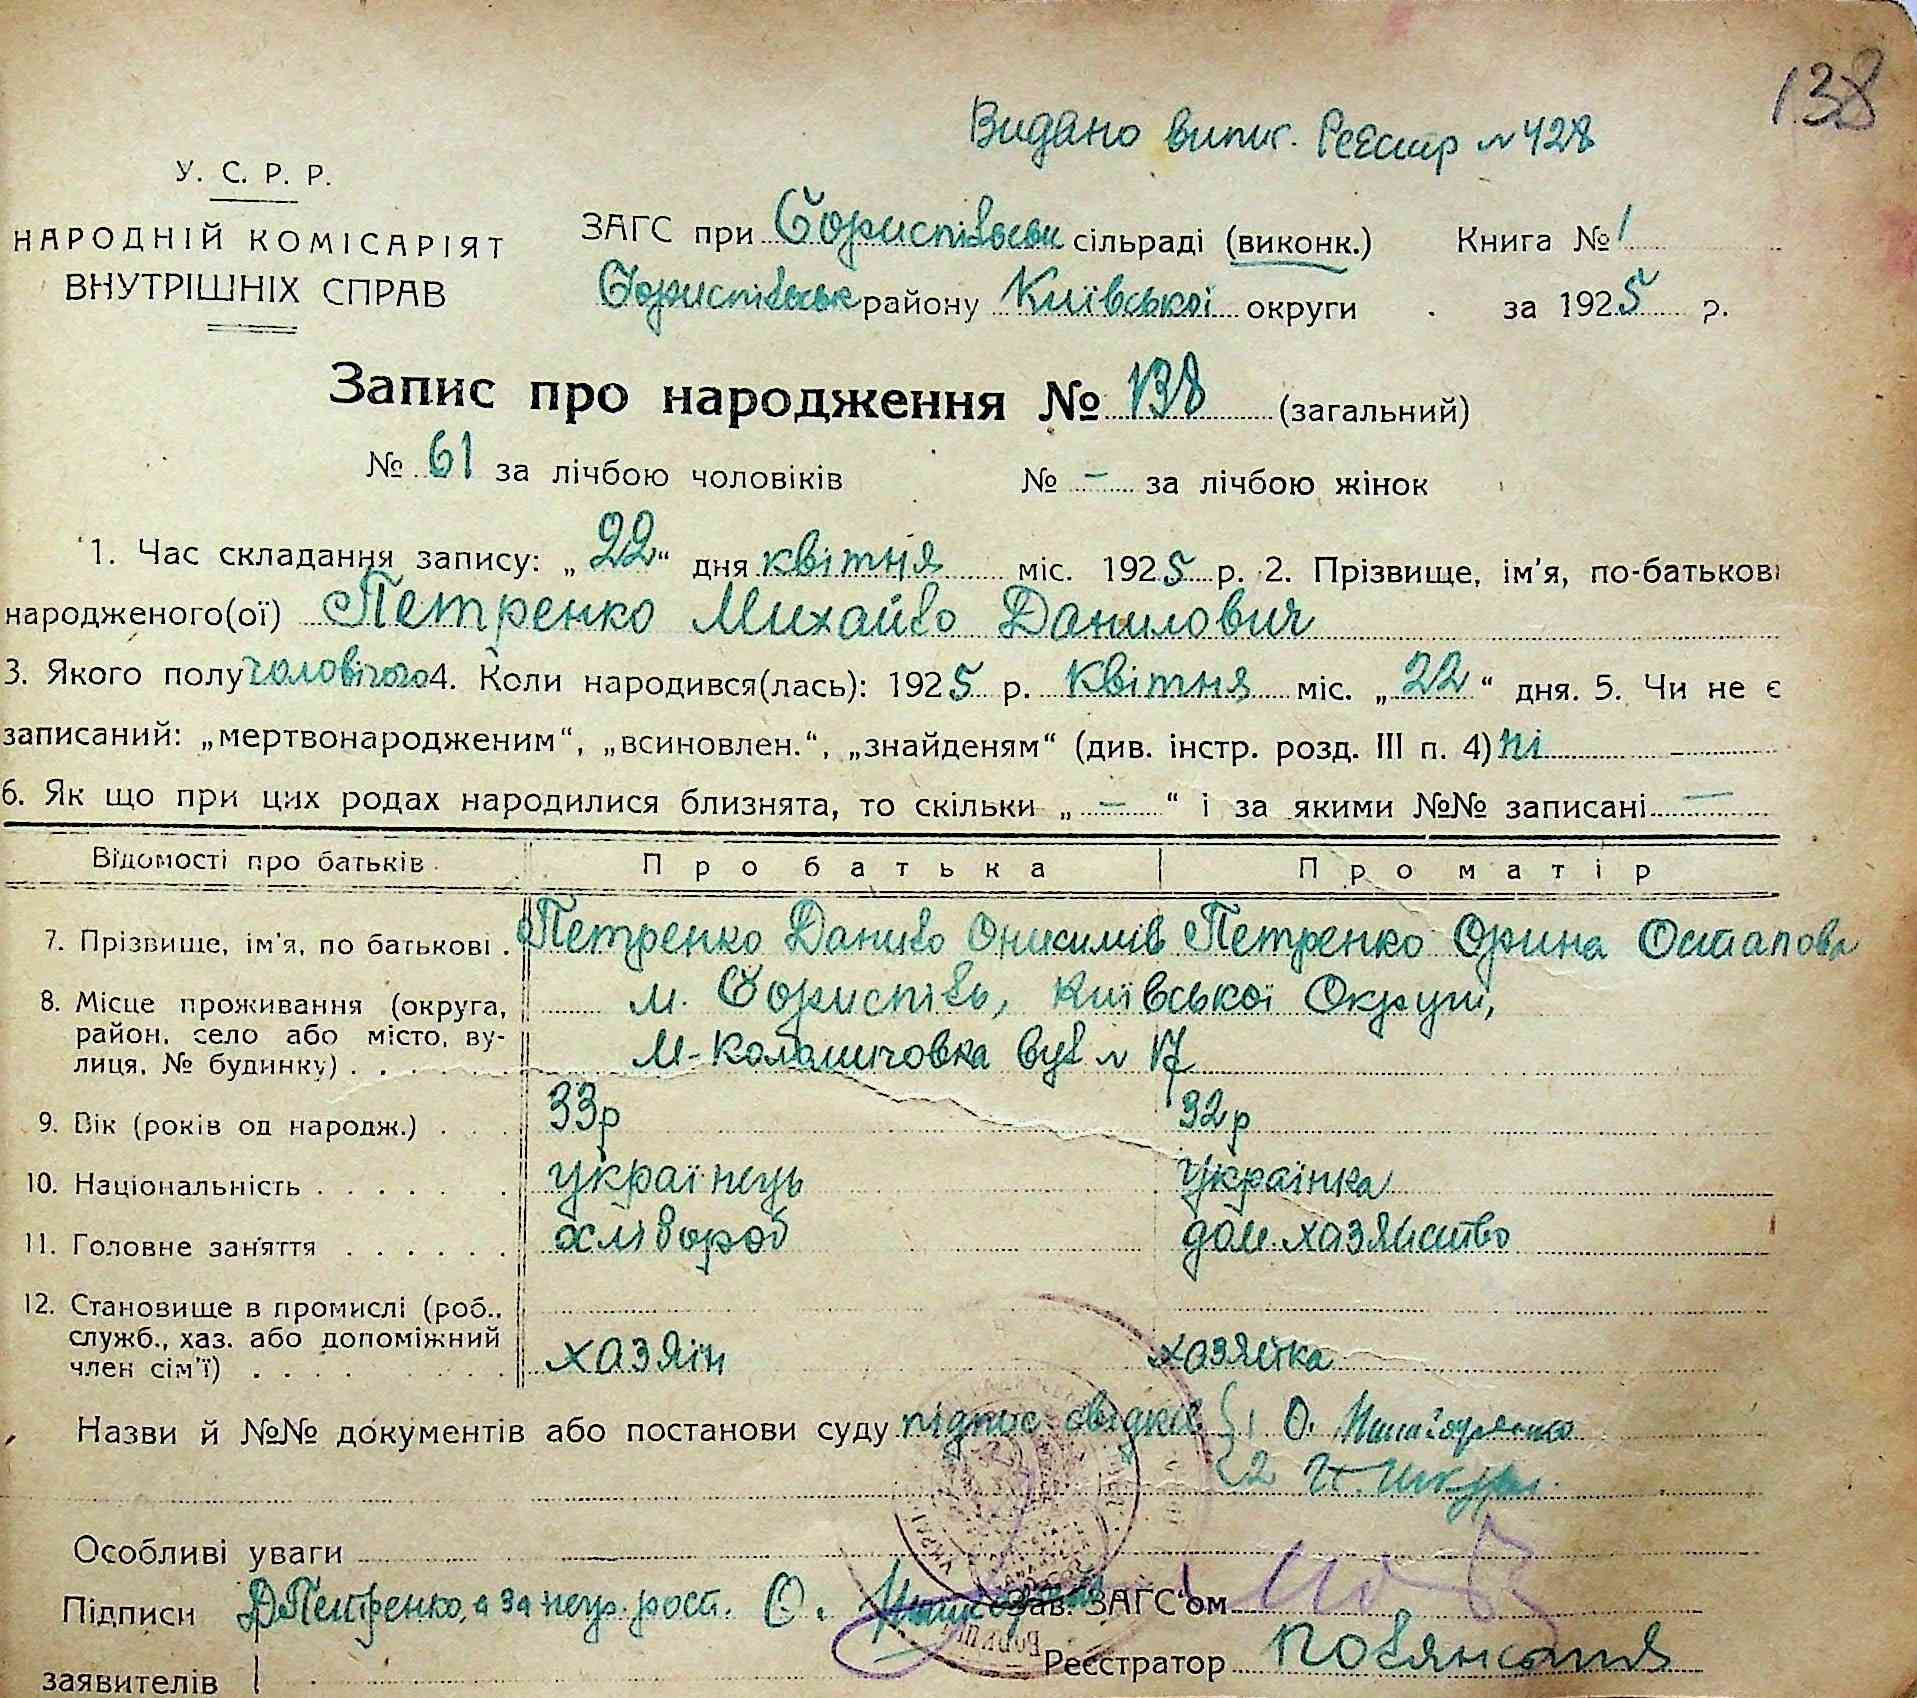 138
Видано випис. Реєстр № 428
У. С. Р. Р.
НАРОДНІЙ КОМІСАРІЯТ
ВНУТРІШНІХ СПРАВ
ЗАГС при Бориспільськ сільраді (виконк.) Книга № 1
Бориспільськ району Київської округи за 1925 р.
Запис про народження № 138 (загальний)
№ 61 за лічбою чоловіків № – за лічбою жінок
1. Час складання запису: „22“ дня квітня міс. 1925 р. 2. Прізвище, ім'я, по-батькові
народженого(ої) Петренко Михайло Данилович
3. Якого полу чоловічого 4. Коли народився(лась): 1925 р. квітня міс. „22“ дня. 5. Чи не є
записаний: „мертвонародженим“, „всиновлен.“, „знайденям“ (див. інстр. розд. III п. 4) ні
6. Як що при цих родах народилися близнята, то скільки „ – “ і за якими №№ записані –
Відомості про батьків Про батька Про матір
7. Прізвище, ім'я, по батькові Петренко Данило Онисимів Петренко Орина Остапова
8. Місце проживання (округа, м. Бориспіль, Київської Округи,
район, село або місто, ву-
лиця, № будинку) вул № 17
9. Вік (років од народж.) 33р 32р
10. Національність українець українка
11. Головне заняття хлібороб дом. хазяйство
12. Становище в промислі (роб.,
служб., хаз. або допоміжний
член сім'ї) хазяїн хазяйка
Назви й №№ документів або постанови суду підпис свідків 1 О.
2
Особливі уваги
Підписи Д Петренко, а за негр. розп. О. Зав. ЗАГС'ом
заявителів Реєстратор